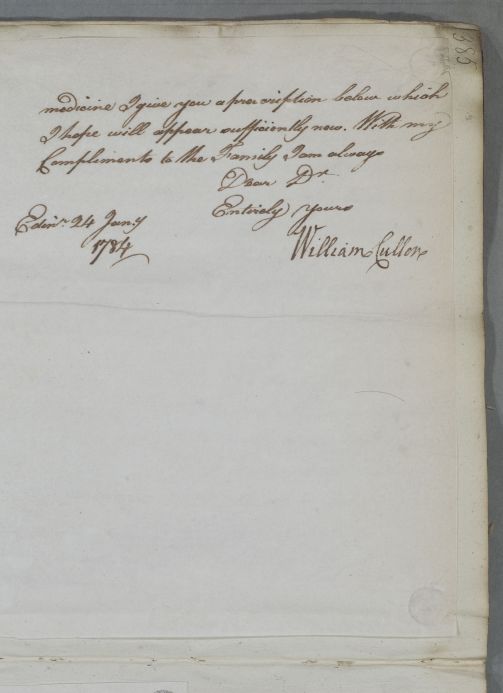 385
medicine I give you a prescription below which
I hope will appear sufficiently new. With my
Compliments to the Family I am always
Dear Dr.
Entirely yours
Edinr. 24 Jany
1784
William Cullen